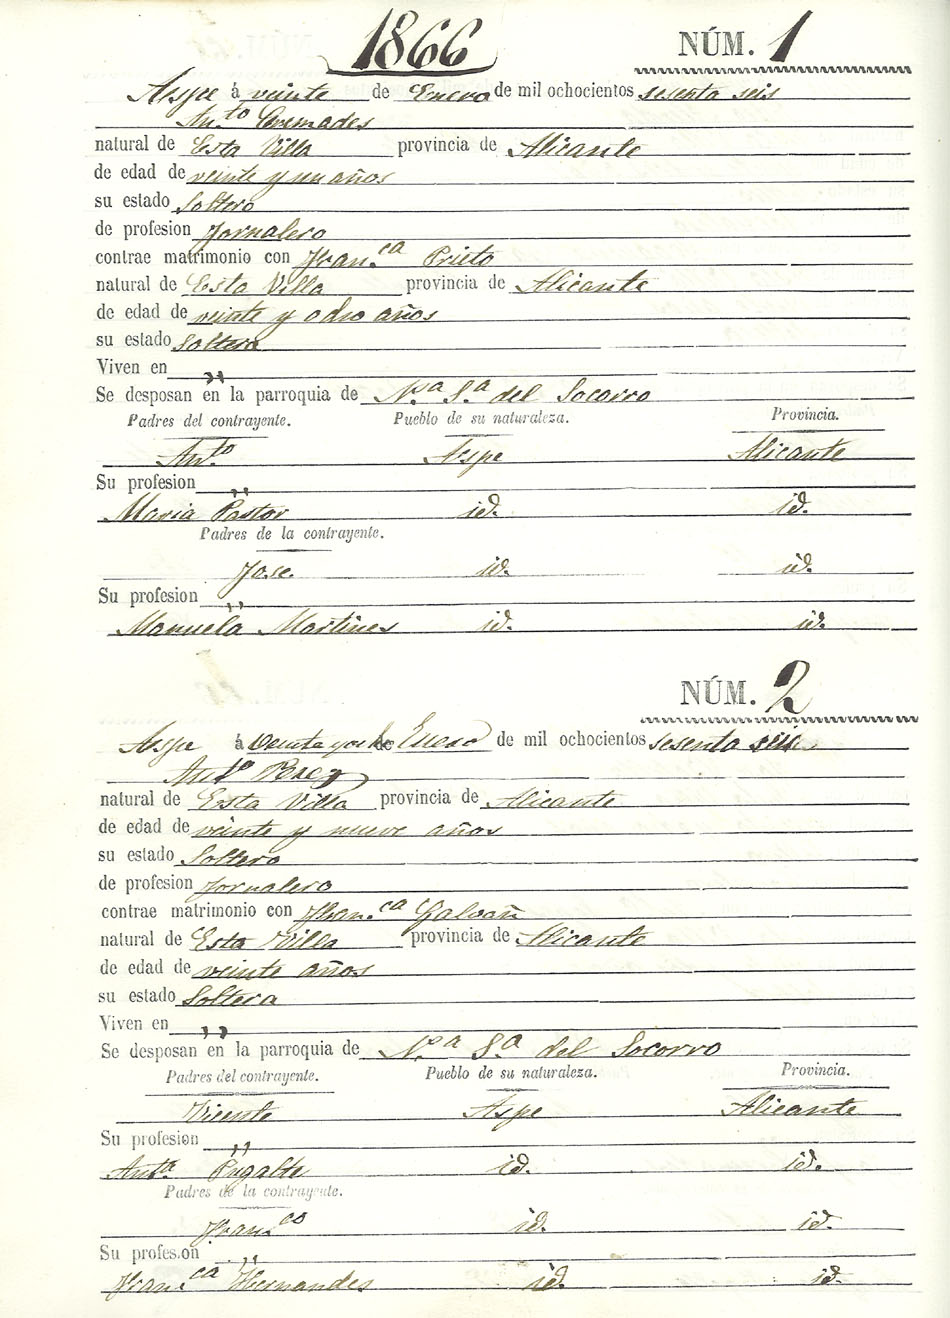 1866 NÚM. 1
Aspe á veinte de Enero de mil ochocientos sesenta seis
An.to Cremades
natural de Esta Villa provincia de Alicante
de edad de veinte y un años
su estado Soltero
de profesion Jornalero
contrae matrimonio con Fran.ca Prieto
natural de Esta Villa provincia de Alicante
de edad de veinte y ocho años
su estado Soltera
Viven en ,,
Se desposan en la parroquia de N.a S.a del Socorro
Padres del contrayente. Pueblo de su naturaleza. Provincia.
An.to Aspe Alicante
Su profesion ,,
Maria Pastor id. id.
Padres de la contrayente.
Jose id. id.
Su profesion ,,
Manuela Martines id. id.
NÚM. 2
Aspe á veinte y ocho Enero de mil ochocientos sesenta seis
Ant.o
natural de Esta Villa provincia de Alicante
de edad de veinte y nueve años
su estado Soltero
de profesion Jornalero
contrae matrimonio con Fran.ca Galvañ
natural de Esta Villa provincia de Alicante
de edad de veinte años
su estado Soltera
Viven en ,,
Se desposan en la parroquia de N.a S.a del Socorro
Padres del contrayente. Pueblo de su naturaleza. Provincia.
Vicente Aspe Alicante
Su profesion ,,
Ant.a Pugalte id. id.
Padres de la contrayente.
Fran.co id. id.
Su profesion ,,
Fran.ca Hernandes id. id.